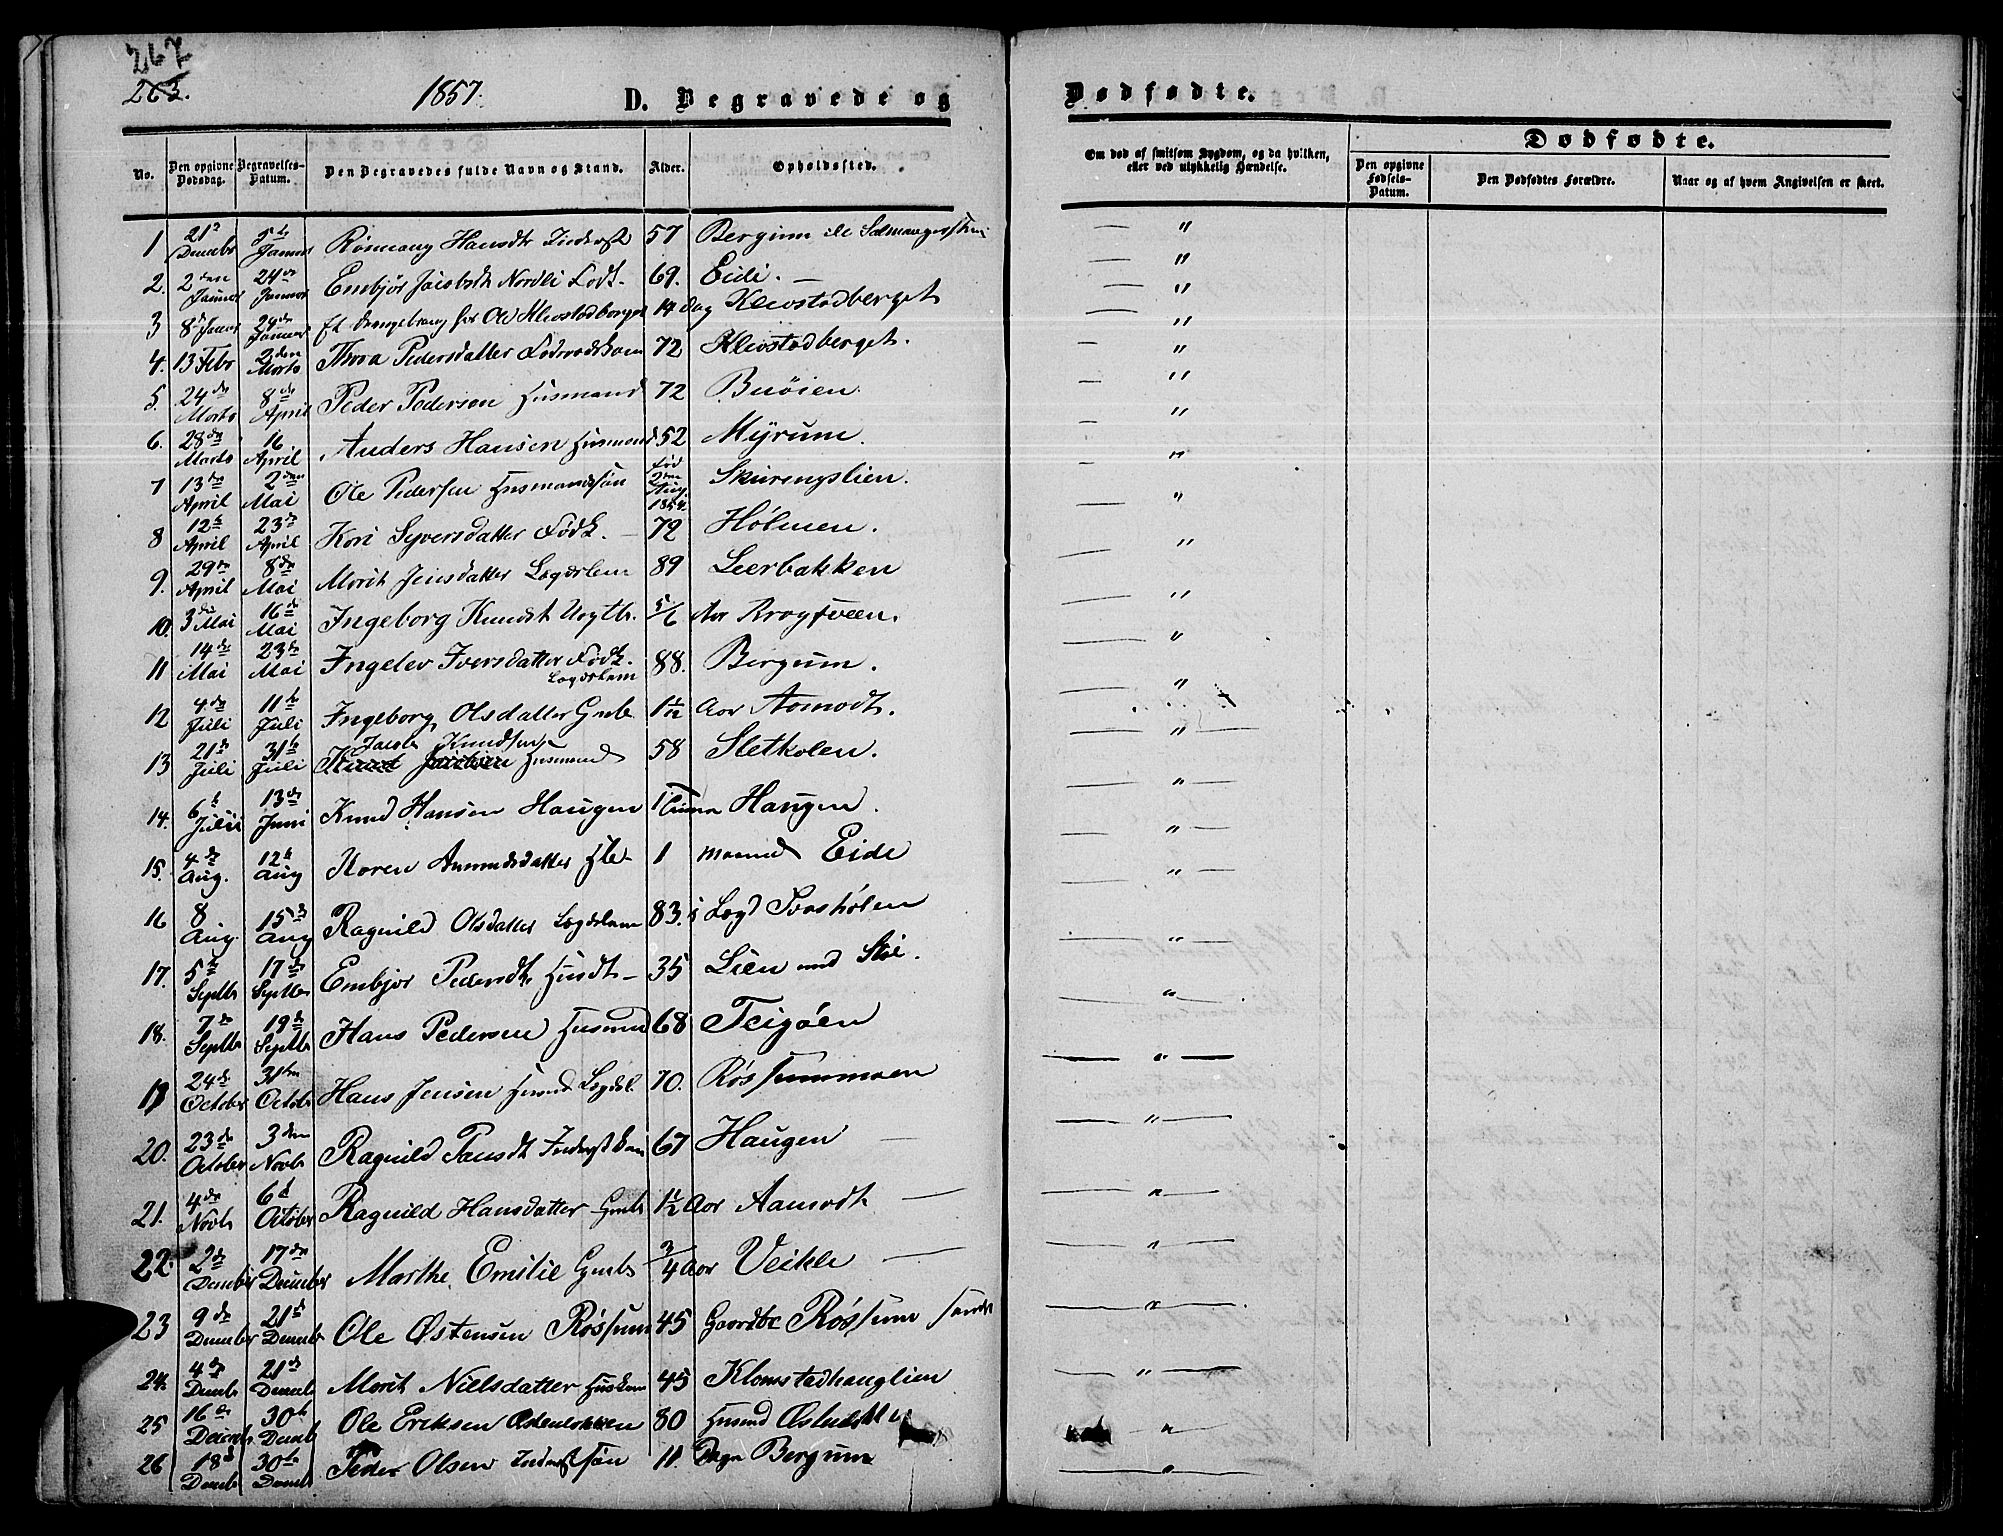 267
263.
1857.
D. Begravede og
Dødfødte.
No.
Den opgivne Dødsdag.
Begravelses-Datum.
Den Begravedes fulde Navn og Stand.
Alder.
Opholdssted.
Om død af smitsom Sygdom, og da hvilken, eller ved ulykkelig Hændelse.
Dødfødte.
Den opgivne Fødsels-Datum.
Den Dødfødtes Forældre.
Naar og af hvem Angivelsen er skeet.
1 21 Decembr 5te Januar Hansdtr Inderst 57 Bergum
2. 2den Januar 24de Januar Embjør Jacobsdt Nordli Fødk. 69. Eidi. — "
3 8de Januar 24de Januar Et for Ole Klevstadberget 14 Dag Klevstadberget "
4. 13 Febr 2den Marts Thora Pedersdatter 72 Klevstadberget. "
5. 24de Marts 8de April Peder Pedersen Husmand 72 Buøien. "
6. 28de Marts 16 April Anders Hansen Husmand 52 Myrum. "
7 13de April 2den Mai Ole Pedersen Husmandssøn fød 2den Aug. Skurengslien. "
8 12te April 23de April Kari Syversdatter Fødk. — 72 Hølmen. "
9. 29de April 8de Mai Marit Jensdatter Lægdslem 89 Leerbakken "
10. 3die Mai 16de Mai Ingeborg Knudsdt 5/6 Aar "
11 14de Mai 23de Mai Ingelev Iversdatter Fødk. Lægdslem 88. Bergum. "
12 4de Juli 11te Juli Ingeborg Olsdatter Gmb. 1 1/12 Aar Aamodt. "
13 21de Juli 31te Juli Jacob Knudsen Husmand 58 Sletholen. "
14. 6te Julii 13de Juni Knud Hansen Haugen 1 Time Haugen. "
15. 4de Aug. 12te Aug Karen Amundsdatter 1 Maaned Eide "
16 8 Aug. 15de Aug Ragnild Olsdatter Lægdslem 83. i Lægd "
17. 5te Septbr 17de Septbr Embjør Pedersdt Husdt — 35 Lien "
18. 7de Septbr 19de Septbr Hans Pedersen Husmd 68 Teigøen "
19 24de October 31te October Hans Jensen Husmd Lægdsl. 70. "
20. 23de October 3den Novbr Ragnild 67 Haugen — "
21. 4de Novbr 6te October Ragnild Hansdatter Gmb 1 1/2 Aar Aamodt — "
22. 2de December 17de December Marthe Emilie Gmb 3/4 Aar Veikle — "
23 9de December 21de Decembr Ole Østensen Røssum 45 Gaardbr Røssum søndre "
24. 4de Decembr 21de Decembr Marit Nielsdatter Huskone 45 Klomstadhauglien "
25 16de December 30te Decembr Ole Eriksen 80 Husmd "
26 18de Decembr 30te Decembr Peder Olsen Inderstsøn 11. Dage Bergum "